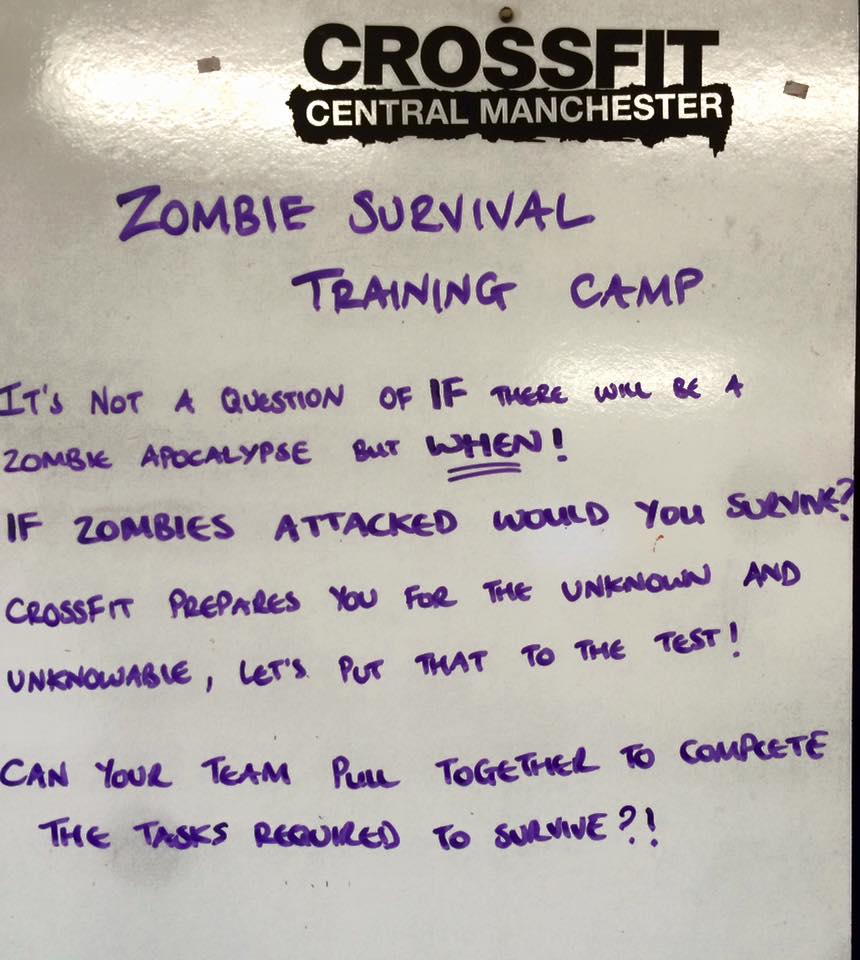 CROSSFIT
CENTRAL MANCHESTER
ZOMBIE SURVIVAL
TRAINING CAMP
IT'S NOT A QUESTION OF IF THERE WILL BE A
ZOMBIE APOCALYPSE BUT WHEN!
IF ZOMBIES ATTACKED WOULD YOU SURVIVE?
CROSSFIT PREPARES YOU FOR THE UNKNOWN AND
UNKNOWABLE, LET'S PUT THAT TO THE TEST!
CAN YOUR TEAM PULL TOGETHER TO COMPLETE
THE TASKS REQUIRED TO SURVIVE?!